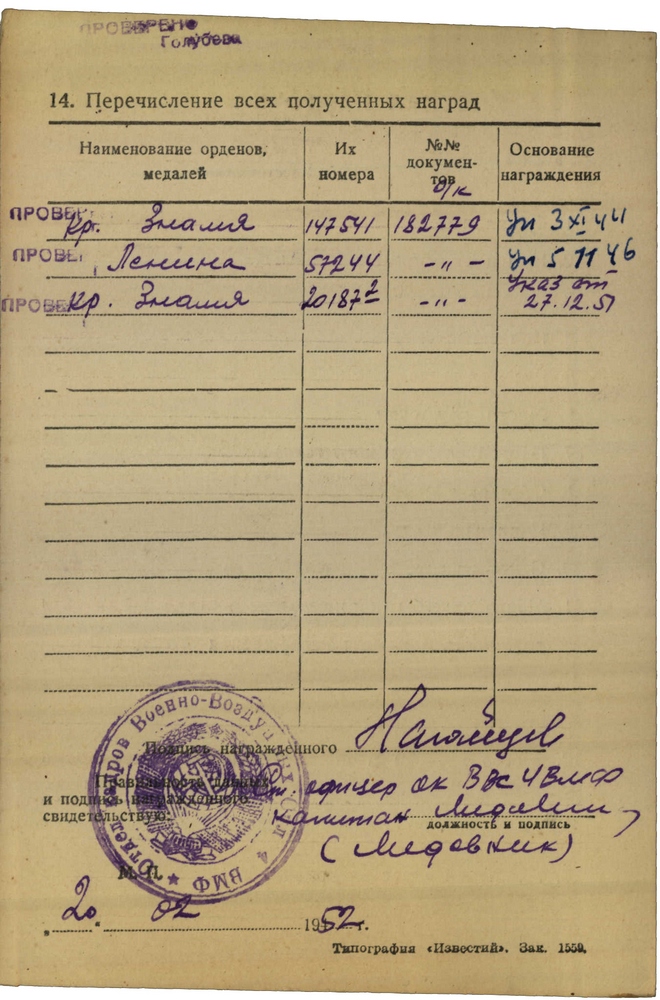 ПРОВЕРЕНО
Голубева
14. Перечисление всех полученных наград
Наименование орденов, медалей
Их номера
№№ документов
о/к
Основание награждения
ПРОВЕР Кр. Знамя 147541 182779 Ук 3 XI 44
ПРОВЕ Ленина 57244 -"- Ук 5 11 46
ПРОВЕ Кр. Знамя 201877 -"- Указ от 27.12.51
Подпись награжденного
Правильность данных
и подпись награжденного
свидетельствую:
Ст. офицер ОК ВВС 4 ВМФ
капитан
должность и подпись
(Медовник)
М. П.
Отдел кадров Военно-Воздушных Сил 4 ВМФ
„20“ 02 1952 г.
Типография «Известий». Зак. 1559.